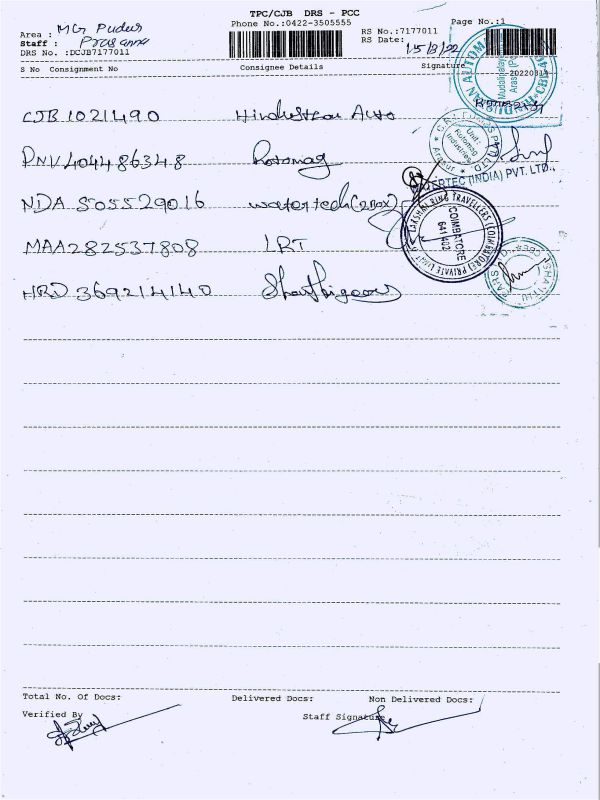 TPC/CJB DRS - PCC
Phone No.:0422-3505555
Page No.:1
Area : MG Pudur
Staff : Prasanna
DRS No. :DCJB7177011
RS No.:7177011
RS Date: 15/3/22
S No Consignment No Consignee Details Signature
CJB 1021490 Hindustan Auto
PNV 404486348 Rotomag
NDA 505529016 watertech (2Box)
MAA 282537808 LRT
HRD 369214140
C.R.I. PUMPS PVT LTD
Unit:
Rotomag
Industries
Arasur
(INDIA) PVT. LTD.,
LAKSHMI RING TRAVELLERS (COIMBATORE) PRIVATE LIMITED
COIMBATORE
641 402
Total No. Of Docs: Delivered Docs: Non Delivered Docs:
Verified By
Staff Signature